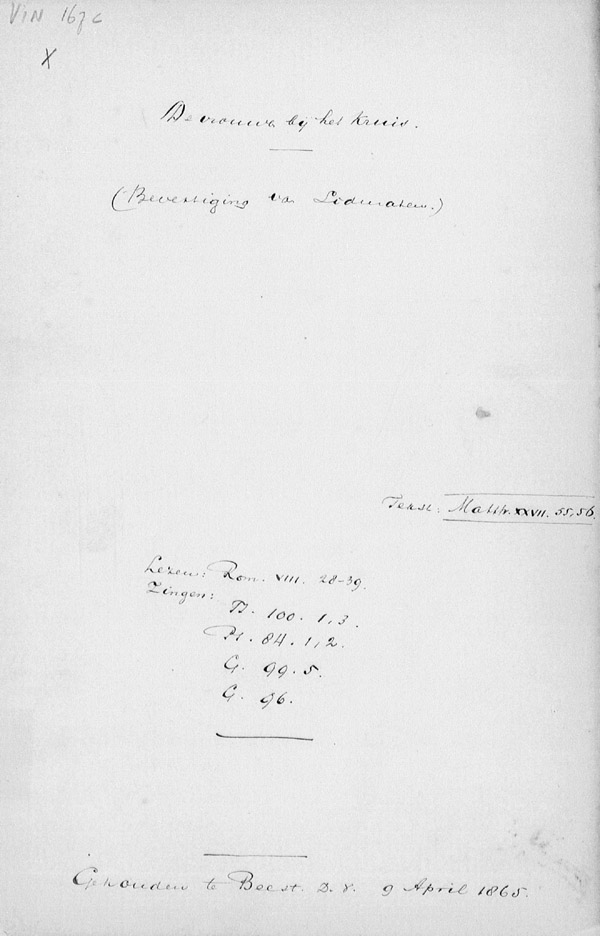 VIN 167c
X
De vrouwen bij het Kruis.
(Bevestiging van Lidmaten.)
Tekst: Matth. XXVII. 55, 56.
Lezen: Rom. VIII. 28-39.
Zingen:
Ps. 100. 1, 3.
Ps. 84. 1, 2.
G. 99. 5.
G. 96.
Gehouden te Beest. D. V. 9 April 1865.